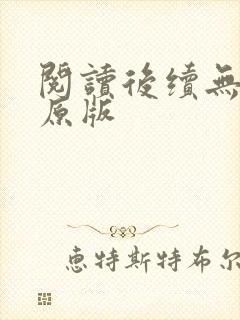 閱讀後續無
原版
惠特斯特布尔